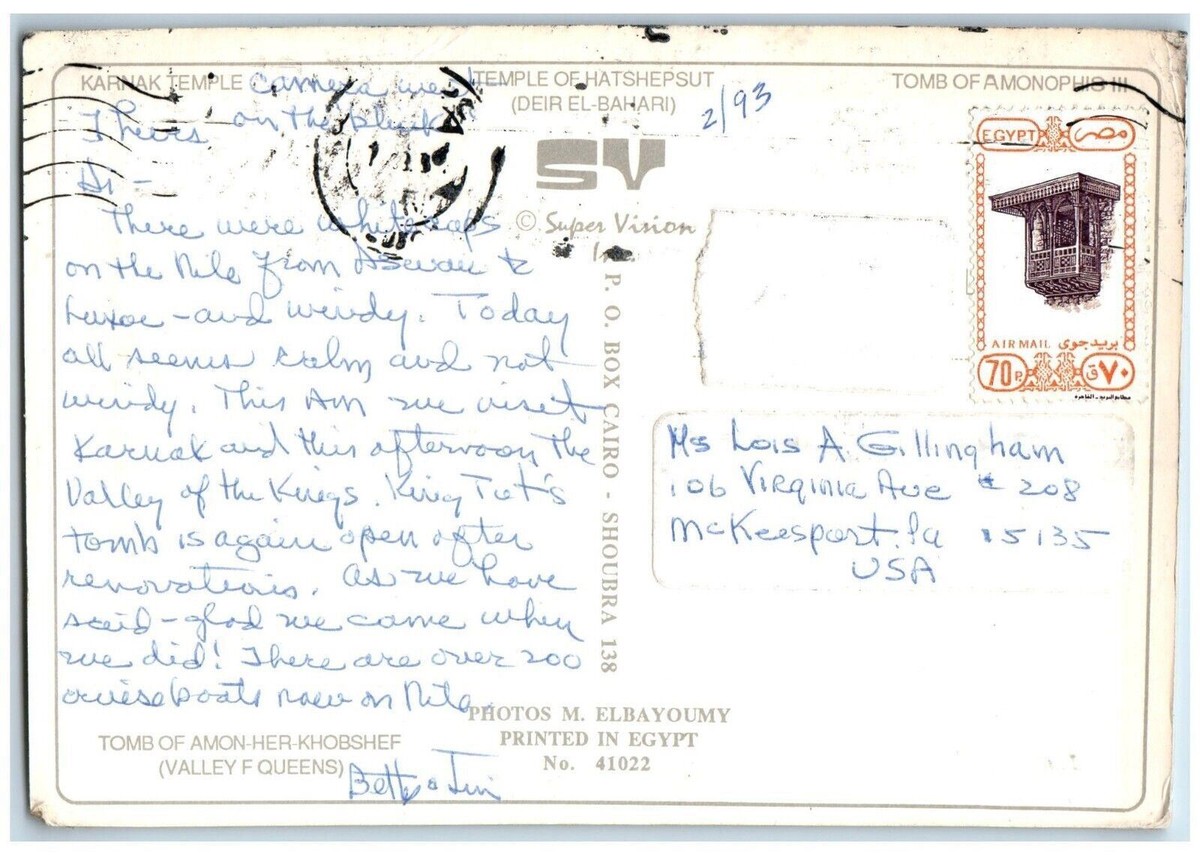 KARNAK TEMPLE
TEMPLE OF HATSHEPSUT
(DEIR EL-BAHARI)
TOMB OF AMONOPHIS III
camera went
on the blink
2/93
Hi -
There were whitecaps
on the Nile from Aswan to
Luxor - and windy. Today
all seems calm and not
windy. This AM we visit
Karnak and this afternoon the
Valley of the Kings. King Tut's
tomb is again open after
renovations. As we have
said - glad we came when
we did! There are over 200
cruise boats now on Nile.
Betty & Jim
SV
© Super Vision
P. O. BOX CAIRO - SHOUBRA 138
EGYPT مصر
AIR MAIL بريد جوى
70 P. ٧٠ ق
Ms Lois A. Gillingham
106 Virginia Ave # 208
McKeesport, Pa 15135
USA
PHOTOS M. ELBAYOUMY
PRINTED IN EGYPT
No. 41022
TOMB OF AMON-HER-KHOBSHEF
(VALLEY F QUEENS)